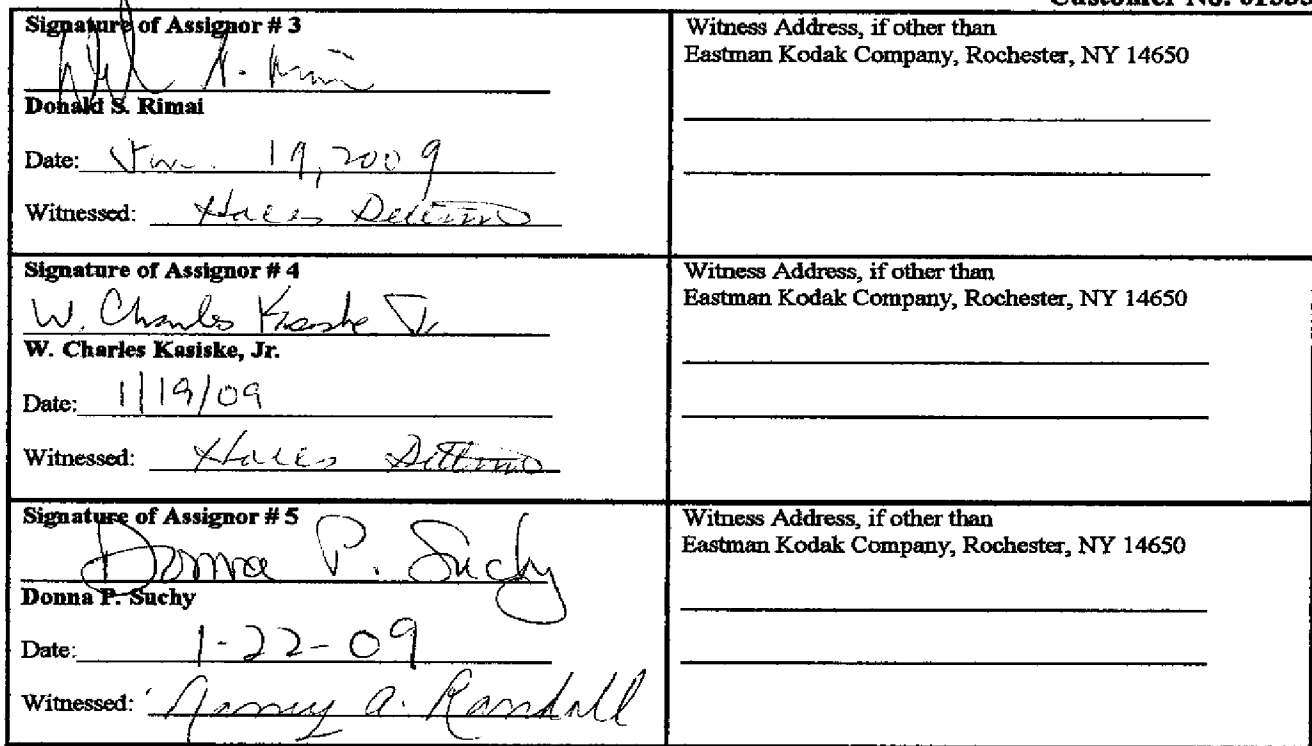 Signature of Assignor # 3
Donald S. Rimai
Date: Jan. 19, 2009
Witnessed:
Witness Address, if other than
Eastman Kodak Company, Rochester, NY 14650
Signature of Assignor # 4
W. Charles Kasiske Jr.
W. Charles Kasiske, Jr.
Date: 1/19/09
Witnessed:
Witness Address, if other than
Eastman Kodak Company, Rochester, NY 14650
Signature of Assignor # 5
Donna P. Suchy
Donna P. Suchy
Date: 1-22-09
Witnessed: Nancy A. Randall
Witness Address, if other than
Eastman Kodak Company, Rochester, NY 14650